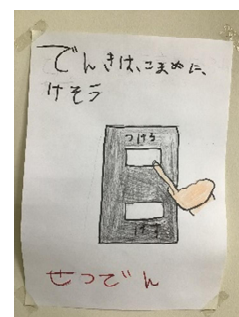 でんきは、こまめに、
けそう
つける
けす
せつでん